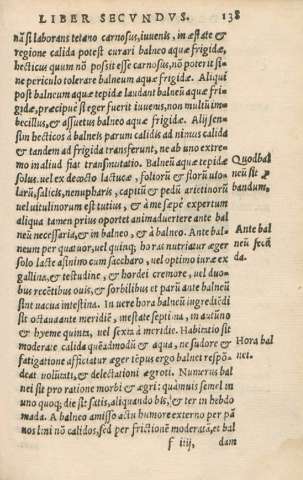 LIBER SECVNDVS. 138
nā si laborans tetano carnosus, iuuenis, in æstate &
regione calida potest curari balneo aquæ frigidæ,
hecticus quum nō possit esse carnosus, nō poterit si-
ne periculo tolerare balneum aquæ frigidæ. Aliqui
post balneum aquæ tepidæ laudant balneū aquæ fri-
gidæ, præcipuè si æger fuerit iuuenis, non multū im-
becillus, & assuetus balneo aquæ frigidæ. Alij sen-
sim hecticos à balneis parum calidis ad minus calida
& tandem ad frigida transferunt, ne ab uno extre-
mo in aliud fiat transmutatio. Balneū aquæ tepidæ
solus. uel ex decocto lactucæ, foliorū & florū uio-
larū, salicis, nenupharis, capitū & pedū arietinorū
uel uitulinorum est tutius, & à me sæpè expertum
aliqua tamen prius oportet animaduertere ante bal
neū necessaria, & in balneo, & à balneo. Ante bal-
neum per quatuor, uel quinq; horas nutriatur æger
solo lacte asinino cum saccharo, uel optimo iure ex
gallina, & testudine, & hordei cremore, uel duo-
bus recētibus ouis, & sorbilibus et parū ante balneū
sint uacua intestina. In uere hora balneū ingrediēdi
sit octaua ante meridiē, in æstate septima, in autūno
& hyeme quinta, uel sexta à meridie. Habitatio sit
moderatè calida quēadmodū & aqua, ne sudore &
fatigatione afficiatur æger tēpus ergo balnei respō-
deat uoluntati, & delectationi ægroti. Numerus bal
nei sit pro ratione morbi & ægri: quāmuis semel in
uno quoq; die sit satis, aliquando bis, & ter in hebdo
mada. A balneo amisso actu humore externo per pā
nos lini nō calidos, sed per frictionē moderatā, et bal
f iiij, dam
Quod bal
neū sit
bandum.
Ante bal
neū
da.
Hora bal
nei.